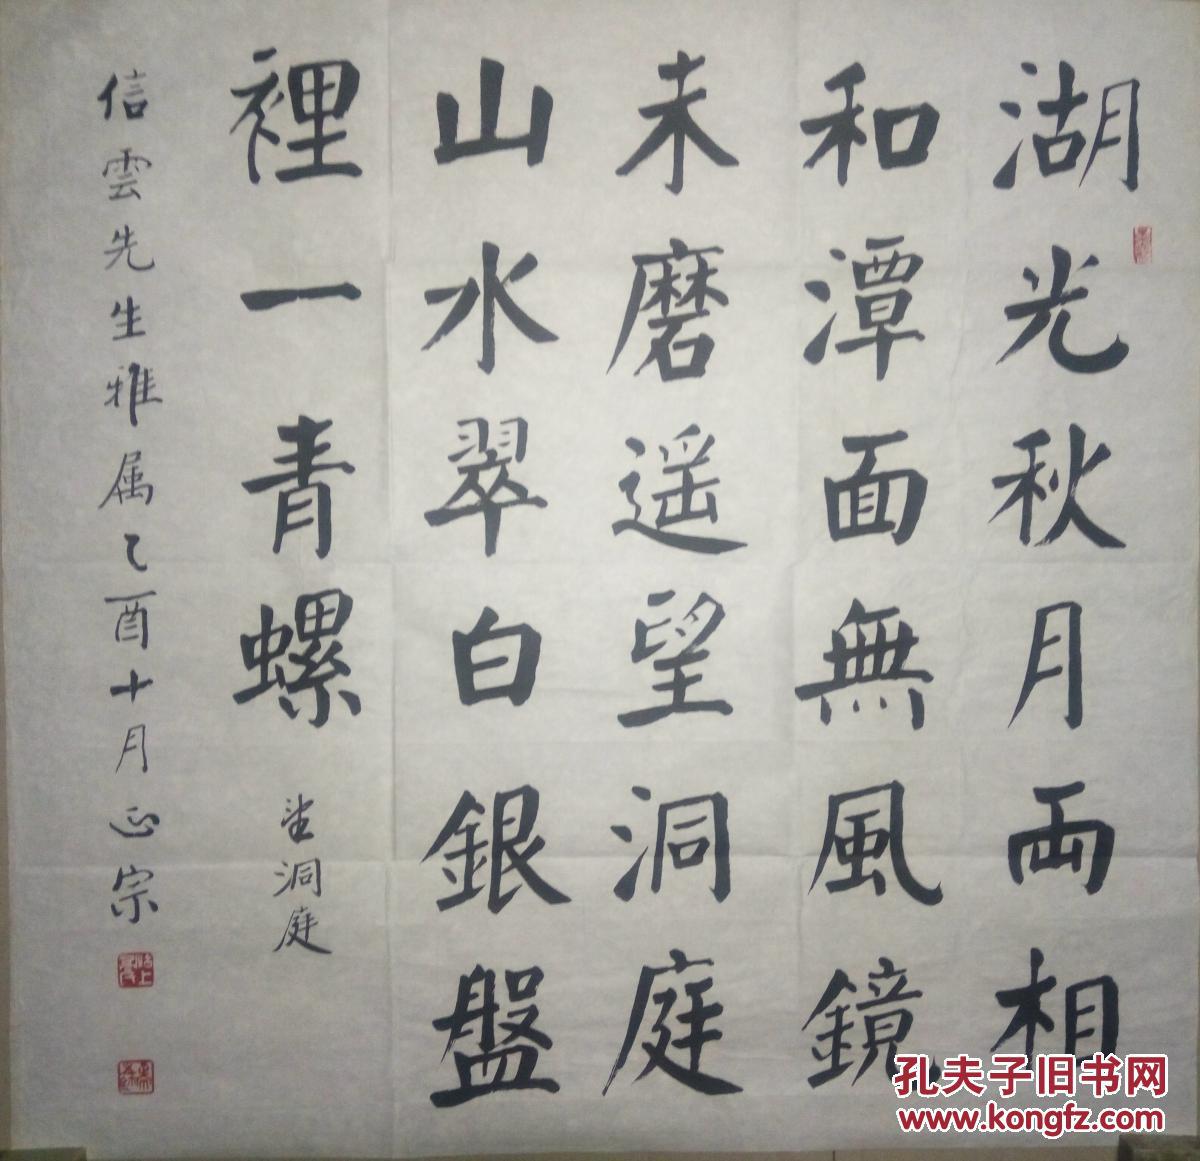 湖光秋月両相
和潭面無風鏡
未磨遥望洞庭
山水翠白銀盤
裡一青螺
望洞庭
信雲先生雅属乙酉十月正宗
孔夫子旧书网
www.kongfz.com